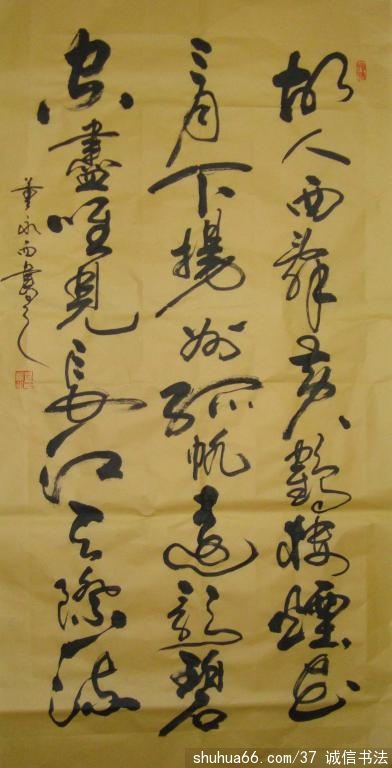 故人西辞黄鹤楼煙花
三月下揚州孤帆遠影碧
空盡唯見長江天際流
董永西書
shuhua66.com/37 诚信书法